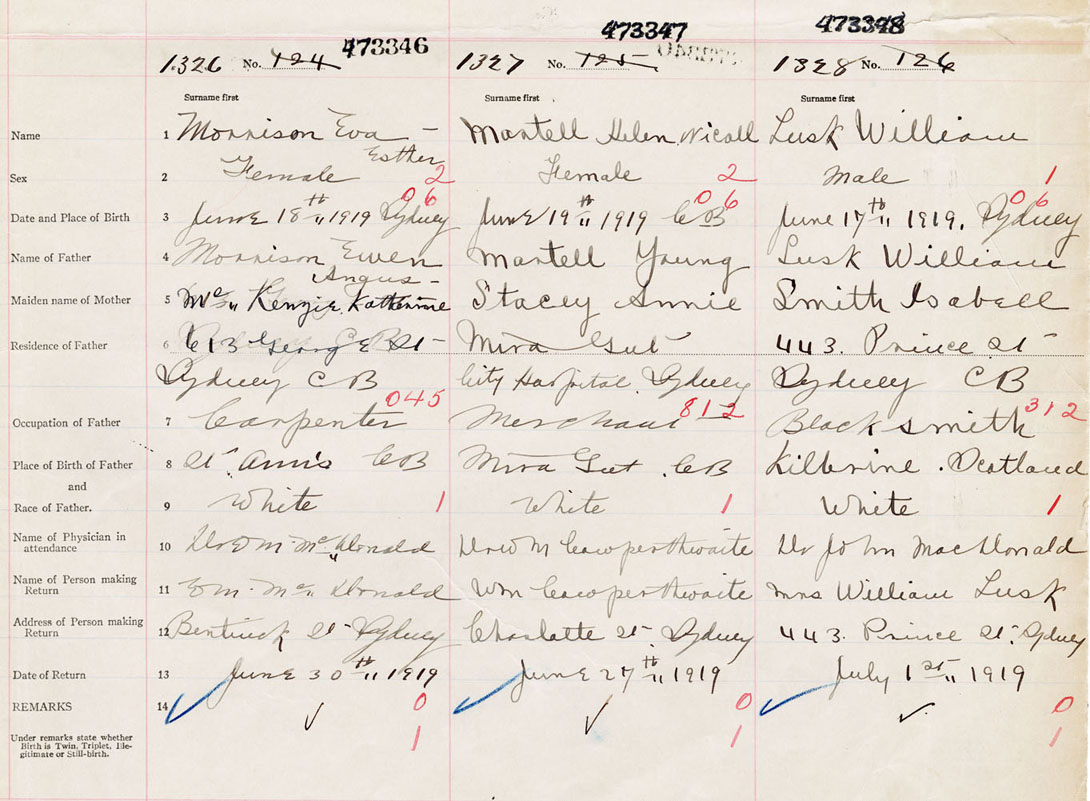 473346 473347 473348
1326 No. 124 1327 No. 125 1328 No. 126
Surname first Surname first Surname first
Name 1 Morrison Eva – Martell Helen Nicall Lusk William
Esther
Sex 2 Female 2 Female 2 Male 1
06 06 06
Date and Place of Birth 3 June 18th 1919 Sydney June 19th 1919 CB June 17th 1919. Sydney
Name of Father 4 Morrison Ewen Martell Young Lusk William
Angus –
Maiden name of Mother 5 Mc Kenzie Katherine Stacey Annie Smith Isabell
Residence of Father 6 613 George St Mira Gut 443. Prince St
Sydney CB City Hospital Sydney Sydney CB
045 812 312
Occupation of Father 7 Carpenter Merchant Blacksmith
Place of Birth of Father 8 St. Anns CB Mira Gut. CB Kilbrine. Scotland
and
Race of Father. 9 White 1 White 1 White 1
Name of Physician in
attendance 10 Dr E M Mc Donald Dr W M Cawperthwaite Dr John MacDonald
Name of Person making
Return 11 E M. Mc Donald Wm Cawperthwaite Mrs William Lusk
Address of Person making
Return 12 Bentinck St Sydney Charlotte St Sydney 443. Prince St. Sydney
Date of Return 13 June 30th 1919 June 27th 1919 July 1st 1919
REMARKS 14 0 0 0
Under remarks state whether
Birth is Twin, Triplet, Ille-
gitimate or Still-birth. 1 1 1